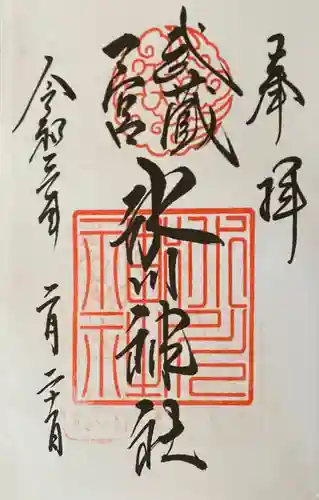 奉拝
武蔵
一宮
氷川神社
令和三年
二月
二十日
氷川神社